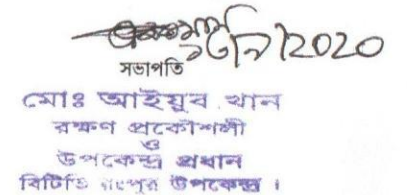 2020
সভাপতি
মোঃ আইয়ুব খান
রক্ষণ প্রকৌশলী
ও
উপকেন্দ্র প্রধান
বিটিভি রংপুর উপকেন্দ্র ।